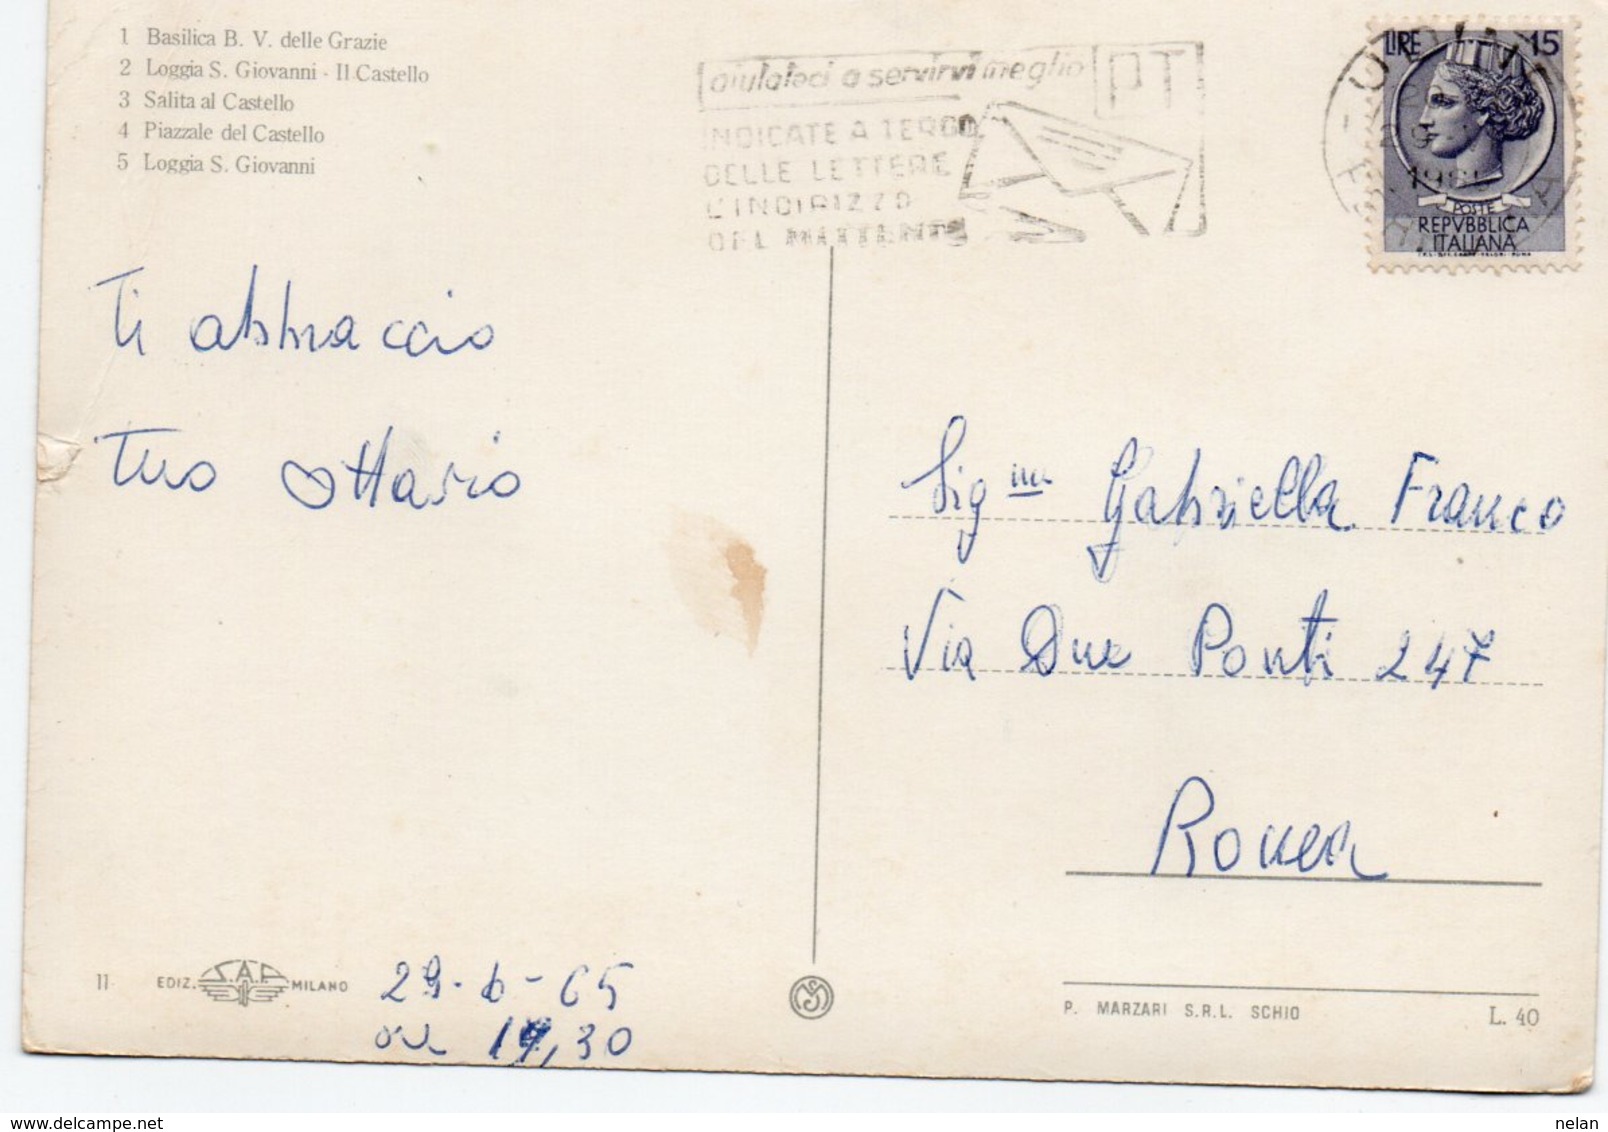 1 Basilica B. V. delle Grazie
2 Loggia S. Giovanni - Il Castello
3 Salita al Castello
4 Piazzale del Castello
5 Loggia S. Giovanni
aiutateci a servirvi meglio
PT
INDICATE A TERGO
DELLE LETTERE
L'INDIRIZZO
DEL MITTENTE
UDINE
LIRE 15
POSTE
REPVBBLICA
ITALIANA
Ti abbraccio
Tuo Ottavio
Sig.na Gabriella Franco
Via Due Ponti 247
Roma
29-6-65
ore 19,30
11 EDIZ. S.A.F. MILANO
P. MARZARI S.R.L. SCHIO
L. 40
nelan